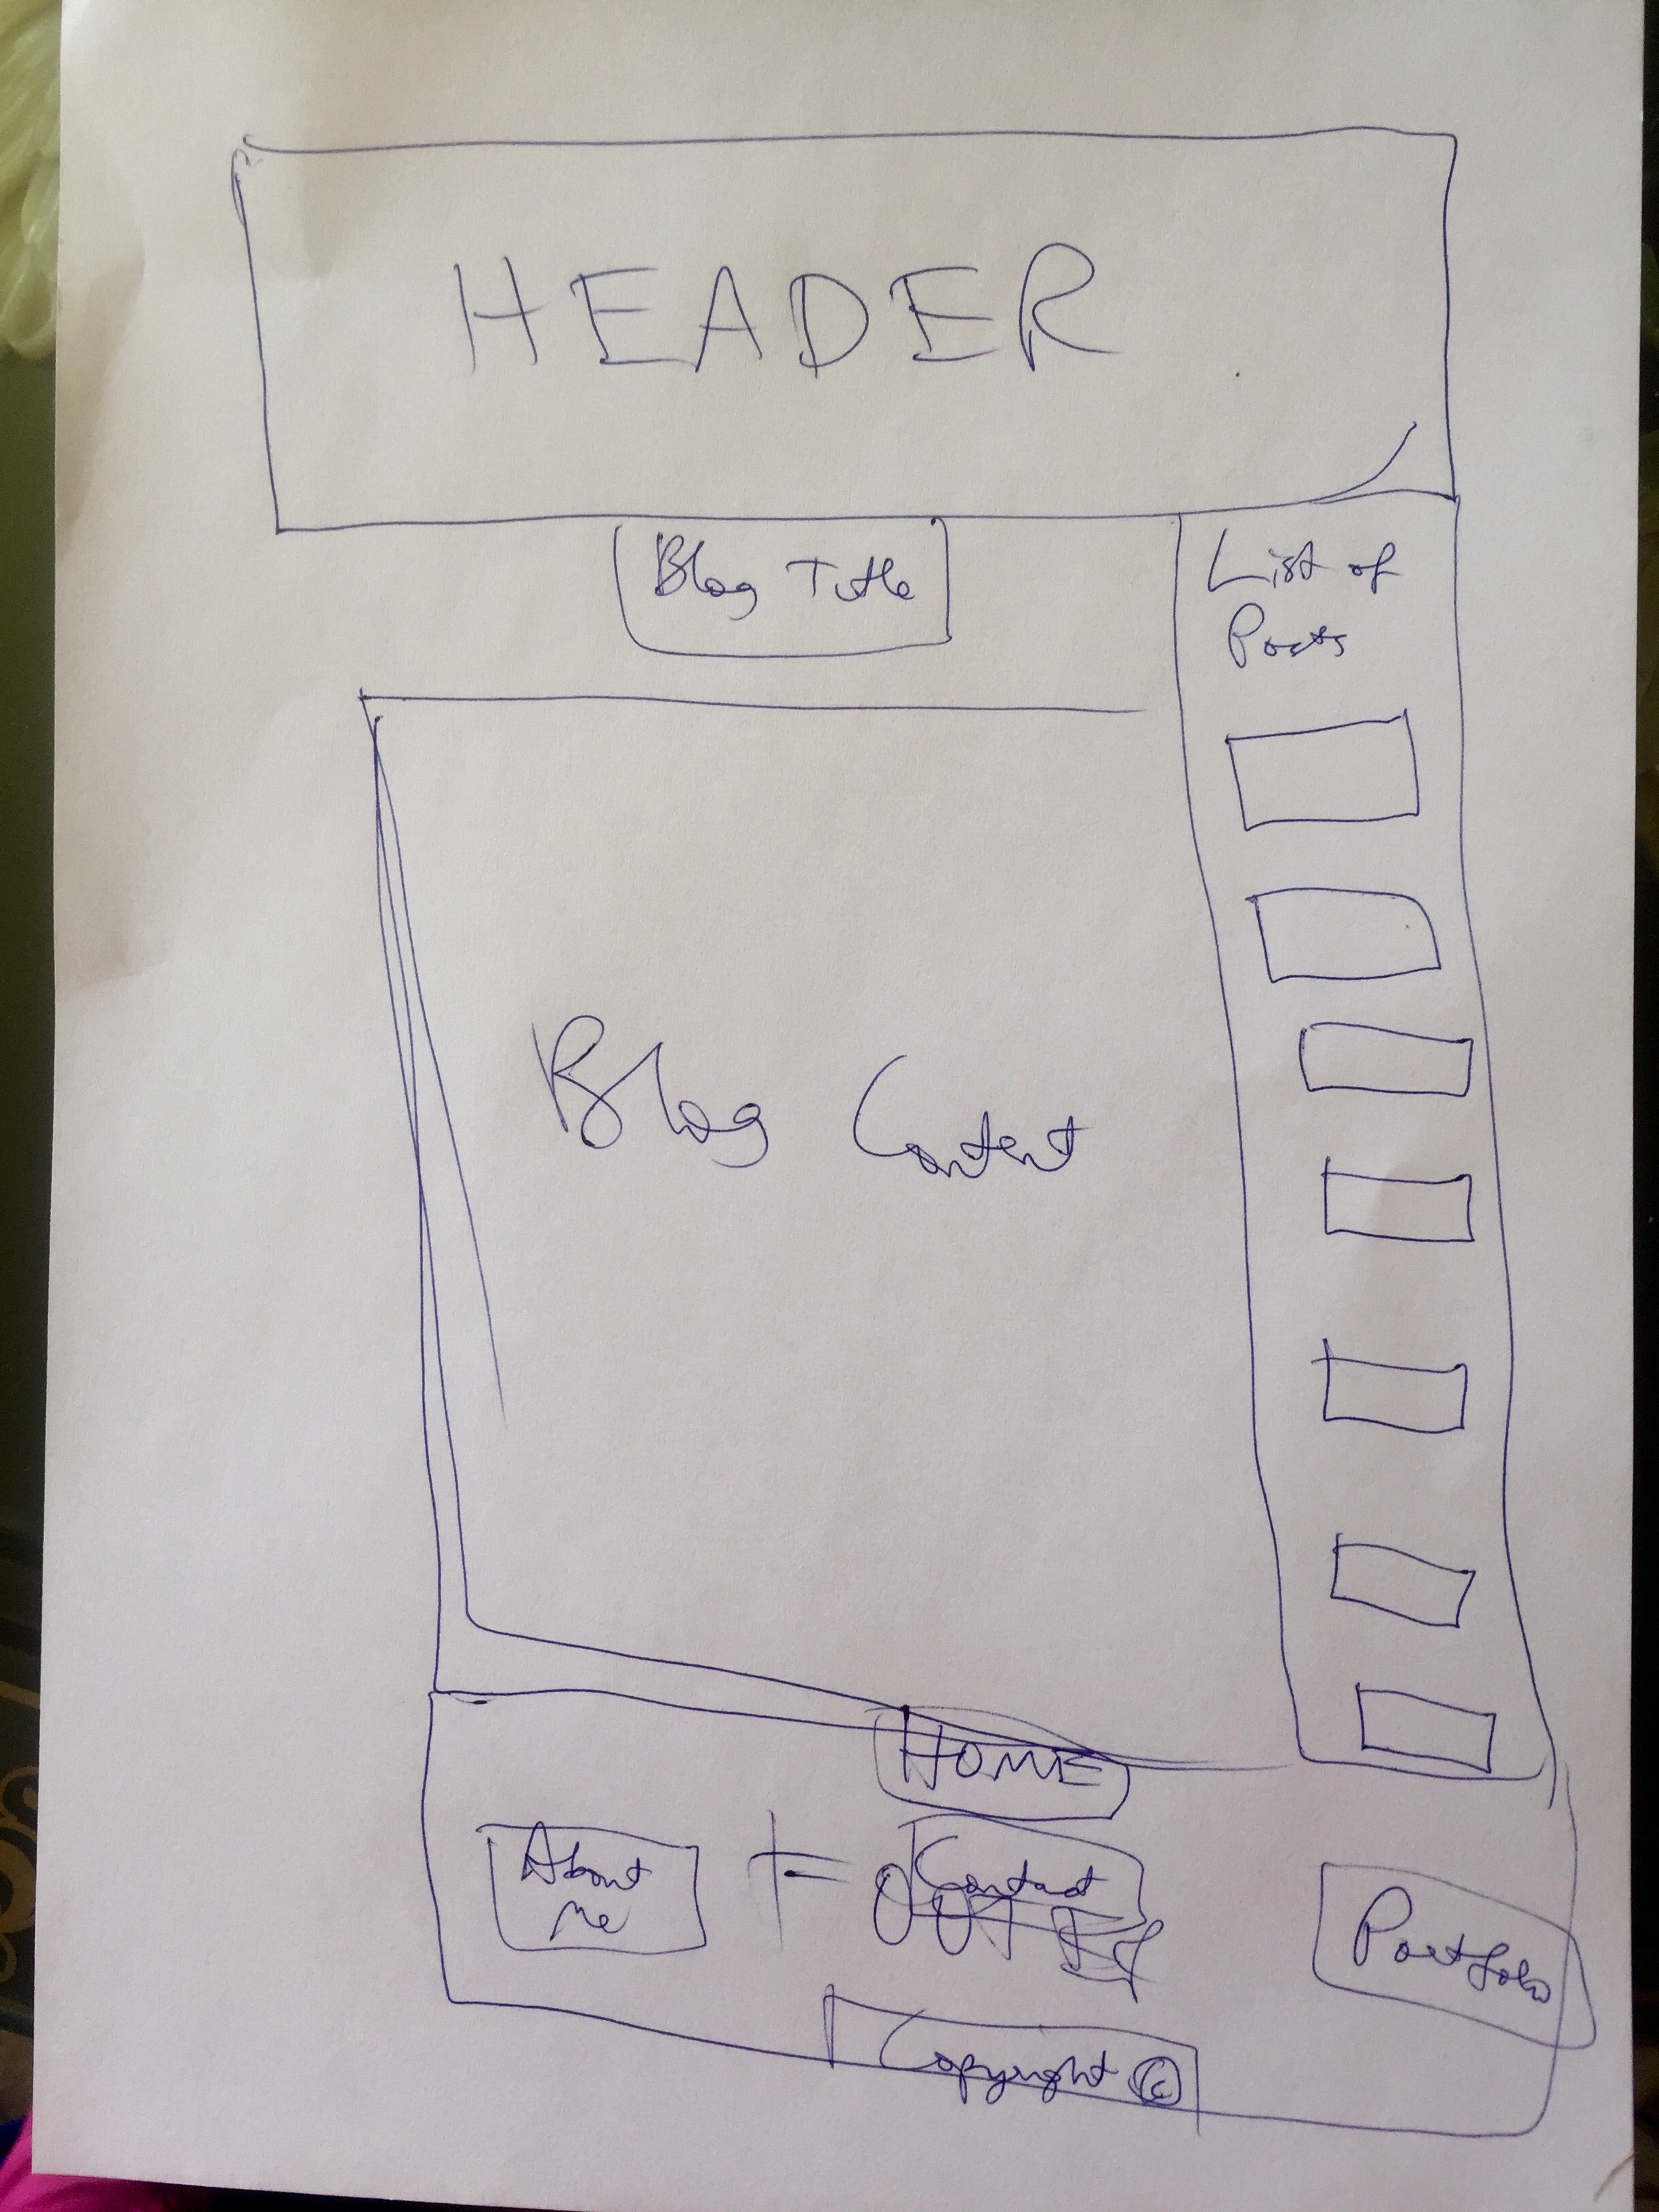 HEADER
Blog Title
List of
Posts
Blog Content
HOME
About
Me
FOOTER
Contact
Portfolio
Copyright ©